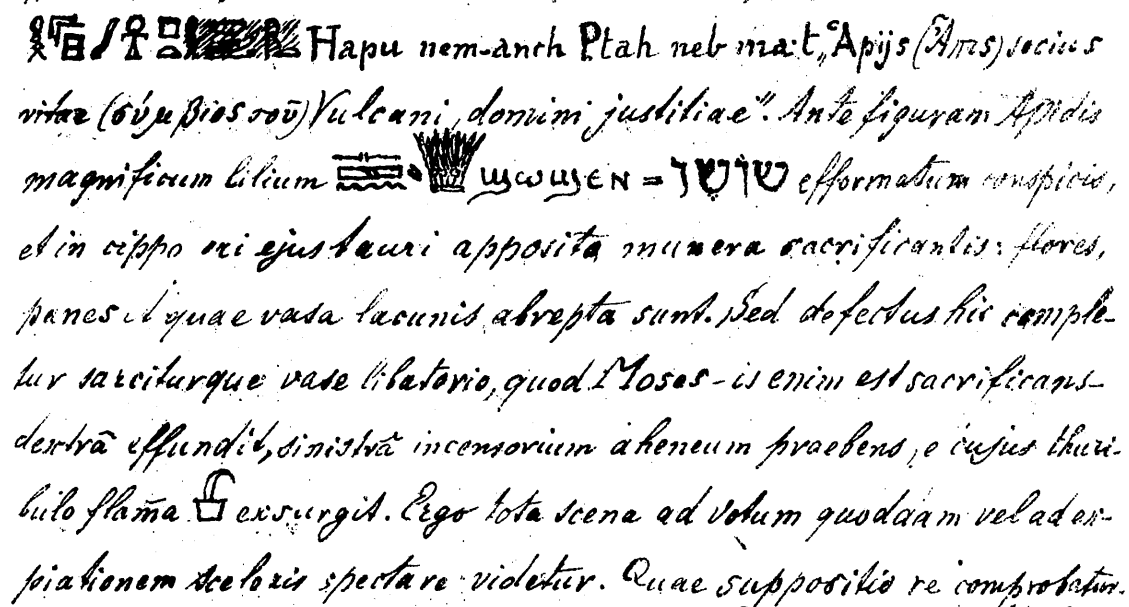 Hapu nem-anch Ptah neb ma:t „Apijs (Ams) socius
vitae (σύμβιος τοῦ) Vulcani, domini justitiae“. Ante figuram Apidis
magnificum lilium ϣωϣⲉⲛ = שׁוֹשָׁן efformatum conspicis,
et in cippo ori ejus tauri apposita munera sacrificantis: flores,
panes et quae vasa lacunis abrepta sunt. Sed defectus hic comple-
tur sarciturque vase libatorio, quod Moses – is enim est sacrificans –
dextrâ effundit, sinistrâ incensorium aheneum praebens, e cujus thuri-
bulo flam̄a exsurgit. Ergo tota scena ad votum quoddam vel ad ex-
piationem sceleris spectare videtur. Quae suppositio re comprobatur.